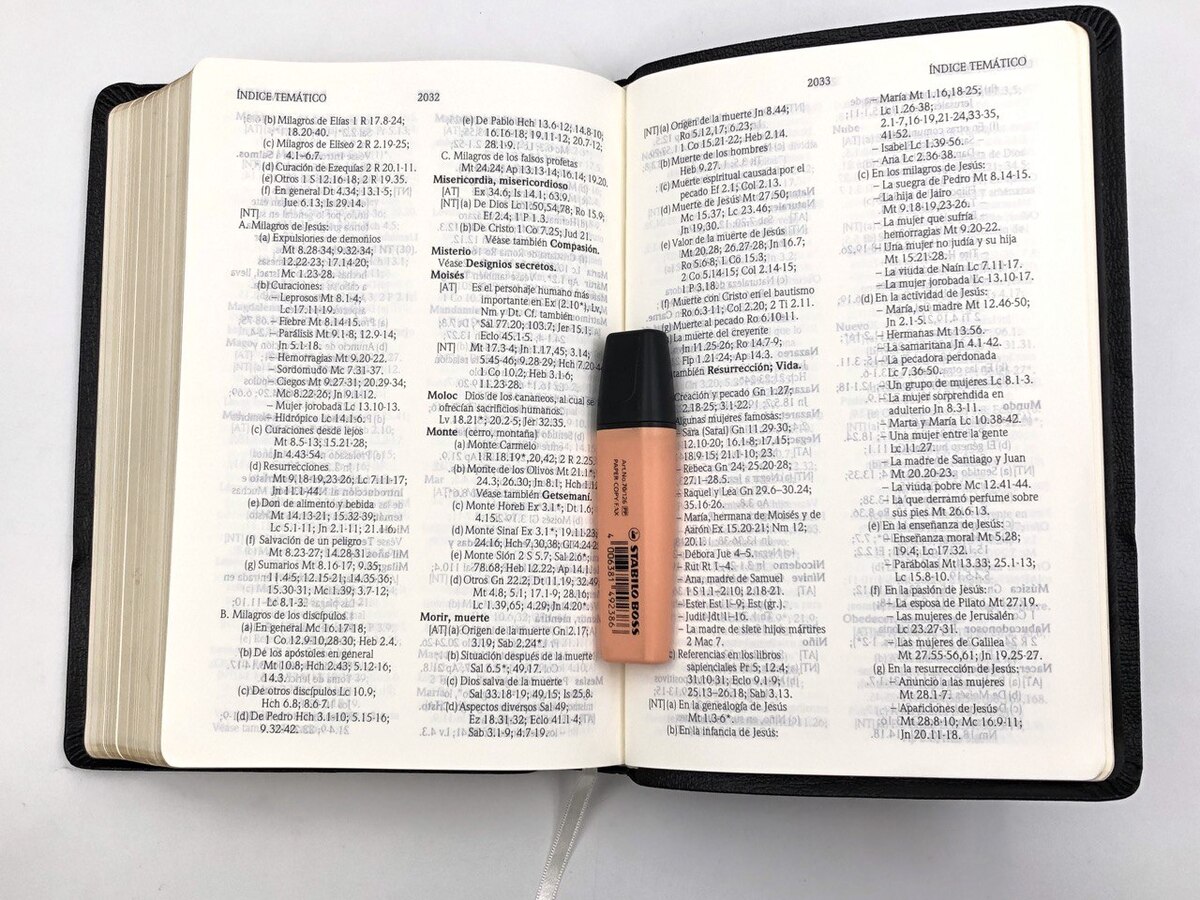 ÍNDICE TEMÁTICO
2032
(b) Milagros de Elías 1 R 17.8-24;
18.20-40.
(c) Milagros de Eliseo 2 R 2.19-25;
4.1–6.7.
(d) Curación de Ezequías 2 R 20.1-11.
(e) Otros 1 S 12.16-18; 2 R 19.35.
(f) En general Dt 4.34; 13.1-5;
Jue 6.13; Is 29.14.
[NT]
A. Milagros de Jesús:
(a) Expulsiones de demonios
Mt 8.28-34; 9.32-34;
12.22-23; 17.14-20;
Mc 1.23-28.
(b) Curaciones:
– Leprosos Mt 8.1-4;
Lc 17.11-19.
– Fiebre Mt 8.14-15.
– Parálisis Mt 9.1-8; 12.9-14;
Jn 5.1-18.
– Hemorragias Mt 9.20-22.
– Sordomudo Mc 7.31-37.
– Ciegos Mt 9.27-31; 20.29-34;
Mc 8.22-26; Jn 9.1-12.
– Mujer jorobada Lc 13.10-13.
– Hidrópico Lc 14.1-6.
(c) Curaciones desde lejos
Mt 8.5-13; 15.21-28;
Jn 4.43-54.
(d) Resurrecciones
Mt 9.18-19,23-26; Lc 7.11-17;
Jn 11.1-44.
(e) Don de alimento y bebida
Mt 14.13-21; 15.32-39;
Lc 5.1-11; Jn 2.1-11; 21.1-6.
(f) Salvación de un peligro
Mt 8.23-27; 14.28-31.
(g) Sumarios Mt 8.16-17; 9.35;
11.4-5; 12.15-21; 14.35-36;
15.30-31; Mc 1.39; 3.7-12;
Lc 8.1-3.
B. Milagros de los discípulos
(a) En general Mc 16.17-18;
1 Co 12.9-10,28-30; Heb 2.4.
(b) De los apóstoles en general
Mt 10.8; Hch 2.43; 5.12-16;
14.3.
(c) De otros discípulos Lc 10.9;
Hch 6.8; 8.6-7.
(d) De Pedro Hch 3.1-10; 5.15-16;
9.32-42.
(e) De Pablo Hch 13.6-12; 14.8-10;
16.16-18; 19.11-12; 20.7-12;
28.1-9.
C. Milagros de los falsos profetas
Mt 24.24; Ap 13.13-14; 16.14; 19.20.
Misericordia, misericordioso
[AT] Ex 34.6; Is 14.1; 63.9.
[NT] (a) De Dios Lc 1.50,54,78; Ro 15.9;
Ef 2.4; 1 P 1.3.
(b) De Cristo 1 Co 7.25; Jud 21.
Véase también Compasión.
Misterio
Véase Designios secretos.
Moisés
[AT] Es el personaje humano más
importante en Ex (2.10*), Lv,
Nm y Dt. Cf. también
Sal 77.20; 103.7; Jer 15.1;
Eclo 45.1-5.
[NT] Mt 17.3-4; Jn 1.17,45; 3.14;
5.45-46; 9.28-29; Hch 7.20-44
1 Co 10.2; Heb 3.1-6;
11.23-28.
Moloc Dios de los cananeos, al cual se
ofrecían sacrificios humanos.
Lv 18.21*; 20.2-5; Jer 32.35.
Monte (cerro, montaña)
(a) Monte Carmelo
1 R 18.19*,20,42; 2 R 2.25
(b) Monte de los Olivos Mt 21.1*
24.3; 26.30; Jn 8.1; Hch 1.12
Véase también Getsemaní.
(c) Monte Horeb Ex 3.1*; Dt 1.6;
4.15.
(d) Monte Sinaí Ex 3.1*; 19.11-23
24.16; Hch 7.30,38; Gl 4.24-25
(e) Monte Sión 2 S 5.7; Sal 2.6*
78.68; Heb 12.22; Ap 14.1
(d) Otros Gn 22.2; Dt 11.19; 32.49
Mt 4.8; 5.1; 17.1-9; 28.16;
Lc 1.39,65; 4.29; Jn 4.20*.
Morir, muerte
[AT] (a) Origen de la muerte Gn 2.17;
3.19; Sab 2.24*.
(b) Situación después de la muerte
Sal 6.5*; 49.17.
(c) Dios salva de la muerte
Sal 33.18-19; 49.15; Is 25.8.
(d) Aspectos diversos Sal 49;
Ez 18.31-32; Eclo 41.1-4;
Sab 3.1-9; 4.7-19.
2033
ÍNDICE TEMÁTICO
[NT] (a) Origen de la muerte Jn 8.44;
Ro 5.12,17; 6.23;
1 Co 15.21-22; Heb 2.14.
(b) Muerte de los hombres
Heb 9.27.
(c) Muerte espiritual causada por el
pecado Ef 2.1; Col 2.13.
(d) Muerte de Jesús Mt 27.50;
Mc 15.37; Lc 23.46;
Jn 19.30.
(e) Valor de la muerte de Jesús
Mt 20.28; 26.27-28; Jn 16.7;
Ro 5.6-8; 1 Co 15.3;
2 Co 5.14-15; Col 2.14-15;
1 P 3.18.
(f) Muerte con Cristo en el bautismo
Ro 6.3-11; Col 2.20; 2 Ti 2.11.
(g) Muerte al pecado Ro 6.10-11.
La muerte del creyente
Jn 11.25-26; Ro 14.7-9;
Flp 1.21-24; Ap 14.3.
también Resurrección; Vida.
Creación y pecado Gn 1.27;
2.18-25; 3.1-22.
Algunas mujeres famosas:
– Sara (Sarai) Gn 11.29-30;
12.10-20; 16.1-8; 17.15;
18.9-15; 21.1-10; 23.
– Rebeca Gn 24; 25.20-28;
27.1–28.5.
– Raquel y Lea Gn 29.6–30.24;
35.16-26.
– María, hermana de Moisés y de
Aarón Ex 15.20-21; Nm 12;
20.1.
– Débora Jue 4–5.
– Rut Rt 1–4.
– Ana, madre de Samuel
1 S 1.1–2.10; 2.18-21.
– Ester Est 1–9; Est (gr.).
– Judit Jdt 1–16.
– La madre de siete hijos mártires
2 Mac 7.
(c) Referencias en los libros
sapienciales Pr 5; 12.4;
31.10-31; Eclo 9.1-9;
25.13–26.18; Sab 3.13.
[NT] (a) En la genealogía de Jesús
Mt 1.3-6*.
(b) En la infancia de Jesús:
– María Mt 1.16,18-25;
Lc 1.26-38;
2.1-7,16-19,21-24,33-35,
41-52.
– Isabel Lc 1.39-56.
– Ana Lc 2.36-38.
(c) En los milagros de Jesús:
– La suegra de Pedro Mt 8.14-15.
– La hija de Jairo
Mt 9.18-19,23-26.
– La mujer que sufría
hemorragias Mt 9.20-22.
– Una mujer no judía y su hija
Mt 15.21-28.
– La viuda de Naín Lc 7.11-17.
– La mujer jorobada Lc 13.10-17.
(d) En la actividad de Jesús:
– María, su madre Mt 12.46-50;
Jn 2.1-5.
– Hermanas Mt 13.56.
– La samaritana Jn 4.1-42.
– La pecadora perdonada
Lc 7.36-50.
– Un grupo de mujeres Lc 8.1-3.
– La mujer sorprendida en
adulterio Jn 8.3-11.
– Marta y María Lc 10.38-42.
– Una mujer entre la gente
Lc 11.27.
– La madre de Santiago y Juan
Mt 20.20-23.
– La viuda pobre Mc 12.41-44.
– La que derramó perfume sobre
sus pies Mt 26.6-13.
(e) En la enseñanza de Jesús:
– Enseñanza moral Mt 5.28;
19.4; Lc 17.32.
– Parábolas Mt 13.33; 25.1-13;
Lc 15.8-10.
(f) En la pasión de Jesús:
– La esposa de Pilato Mt 27.19.
– Las mujeres de Jerusalén
Lc 23.27-31.
– Las mujeres de Galilea
Mt 27.55-56,61; Jn 19.25-27.
(g) En la resurrección de Jesús:
– Anuncio a las mujeres
Mt 28.1-7.
– Apariciones de Jesús
Mt 28.8-10; Mc 16.9-11;
Jn 20.11-18.
Art.No 70/126
PAPER COPY FAX
STABILO BOSS
4 006381 492386